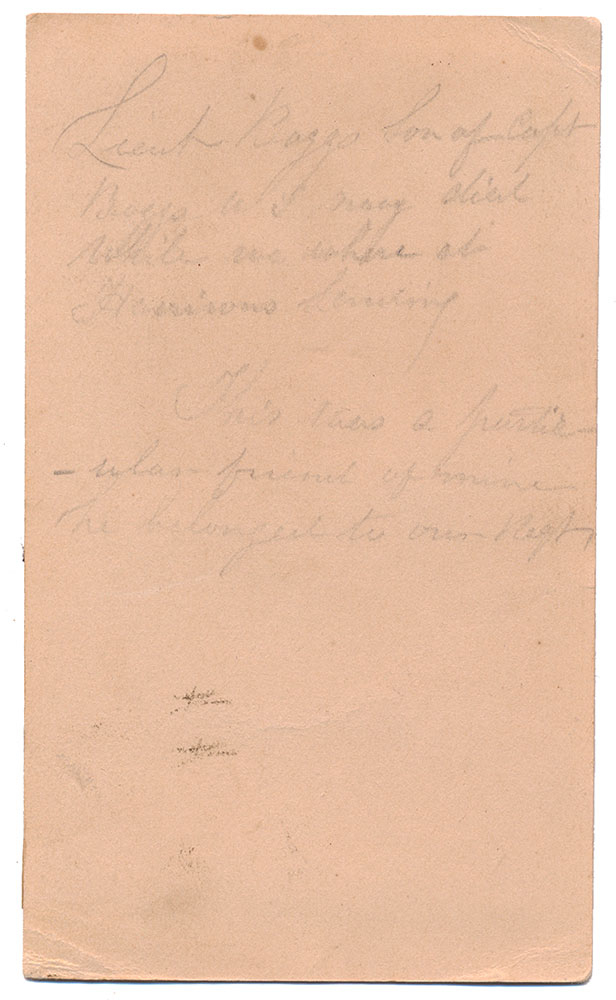 Lieut Boggs Son of Capt
Boggs U S navy died
While we where at
Harrisons Lanving
This was a partic-
-ular friend of mine
he belonged to our Regt